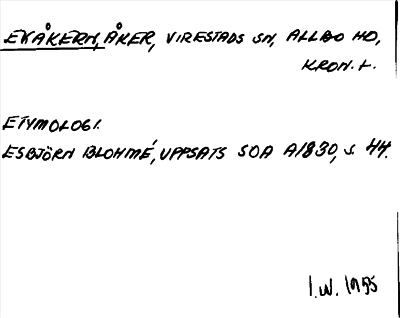 EKÅKERN, ÅKER, VIRESTADS SN, ALLBO HD,
KRON. L.
ETYMOLOGI.
ESBJÖRN BLOHMÉ, UPPSATS SOA A1830, S. 44.
I.W. 1955